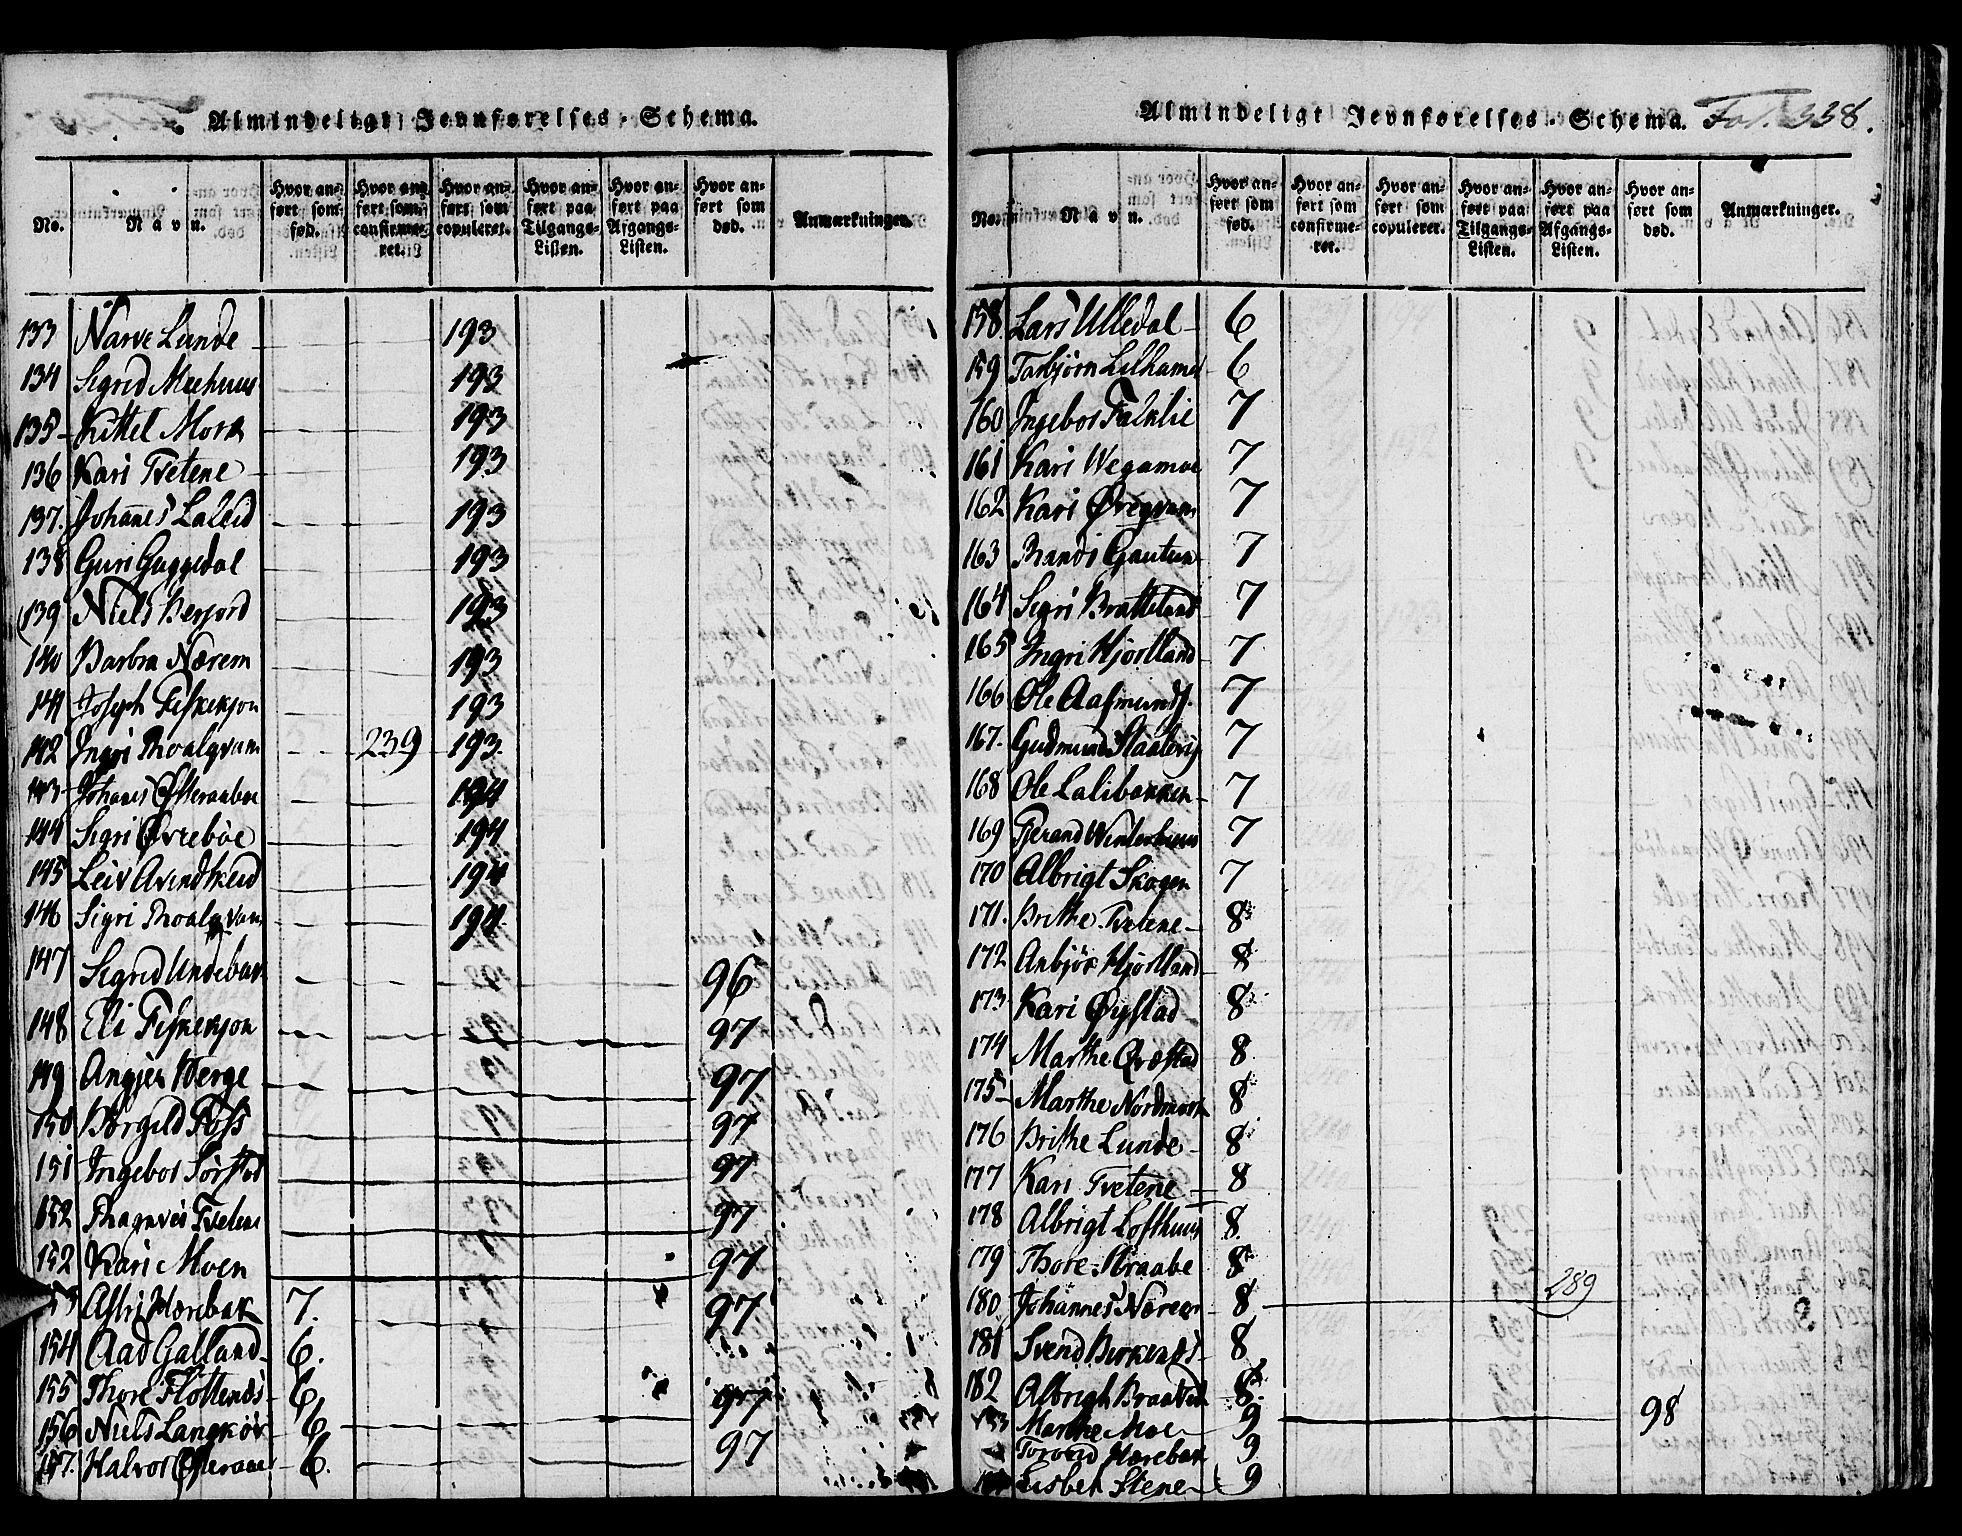 Almindeligt Jevnførelses-Schema.
No. Navn. Hvor anført som fød. Hvor anført som confirmeret. Hvor anført som copuleret. Hvor anført paa Tilgangs-Listen. Hvor anført paa Afgangs-Listen. Hvor anført som død. Anmærkninger.
133 Narve Lunde 193
134 Sigrid Meehuus 193
135 Kittel Mork 193
136 Kari Tvetene 193
137. Johanes Lalid 193
138 Guri Guggedal 193
139 Niels Berjord 193
140 Barbra Nærem 193
141 Joseph Fiskekjon 193
142 Ingri Roalqvam 239 193
143 Johanes Østeraabøe 194
144 Sigri Øvrebøe 194
145 Leiv Arndtheid 194
146 Sigri Roalqvam 194
147 Sigrid Undebak 96
148 Eli Fiskekjon 97
149 Angjer Berge 97
150 Børgild Foss 97
151 Ingebor Sørstad 97
152 Ragnvei Tvetene 97
152 Kari Moen 97
153 Astri Hærebak 7. 97
154 Aad Galland 6.
155 Thore Flottenæs 6 97
156 Niels Langkør 6
157. Halvor Østeraae 6. 97
Almindeligt Jevnførelses-Schema. Fol. 338.
No. Navn. Hvor anført som fød. Hvor anført som confirmeret. Hvor anført som copuleret. Hvor anført paa Tilgangs-Listen. Hvor anført paa Afgangs-Listen. Hvor anført som død. Anmærkninger.
158 Lars Ulledal 6
159 Torbjørn Lilhamer 6
160 Ingebor Falklie 7
161 Kari Wegamoe 7
162 Kari Øregvam 7
163 Randi Gautun 7
164 Sigri Bratteland 7
165 Ingri Hjortland 7
166 Ole Aasmunds. 7
167. Gudmund Staalevig 7
168 Ole Lalibakken 7
169 Tjerand Winterhuus 7
170 Albrigt Skogen 7
171. Brithe Tvetene 8
172 Anbjør Hjortland 8
173 Kari Øystad 8
174 Marthe Qvæstad 8
175 Marthe Nordmork 8
176 Brithe Lunde 8
177 Kari Tvetene 8
178 Albrigt Lofthuus 8.
179 Thore Straabe 8
180 Johannes Nærem 8 289
181 Svend Birkenæs 8
182 Albrigh Braatvet 8
183 Marthe Moe 9 98
Torvord Hærebak 9
Lisbet Stene 9